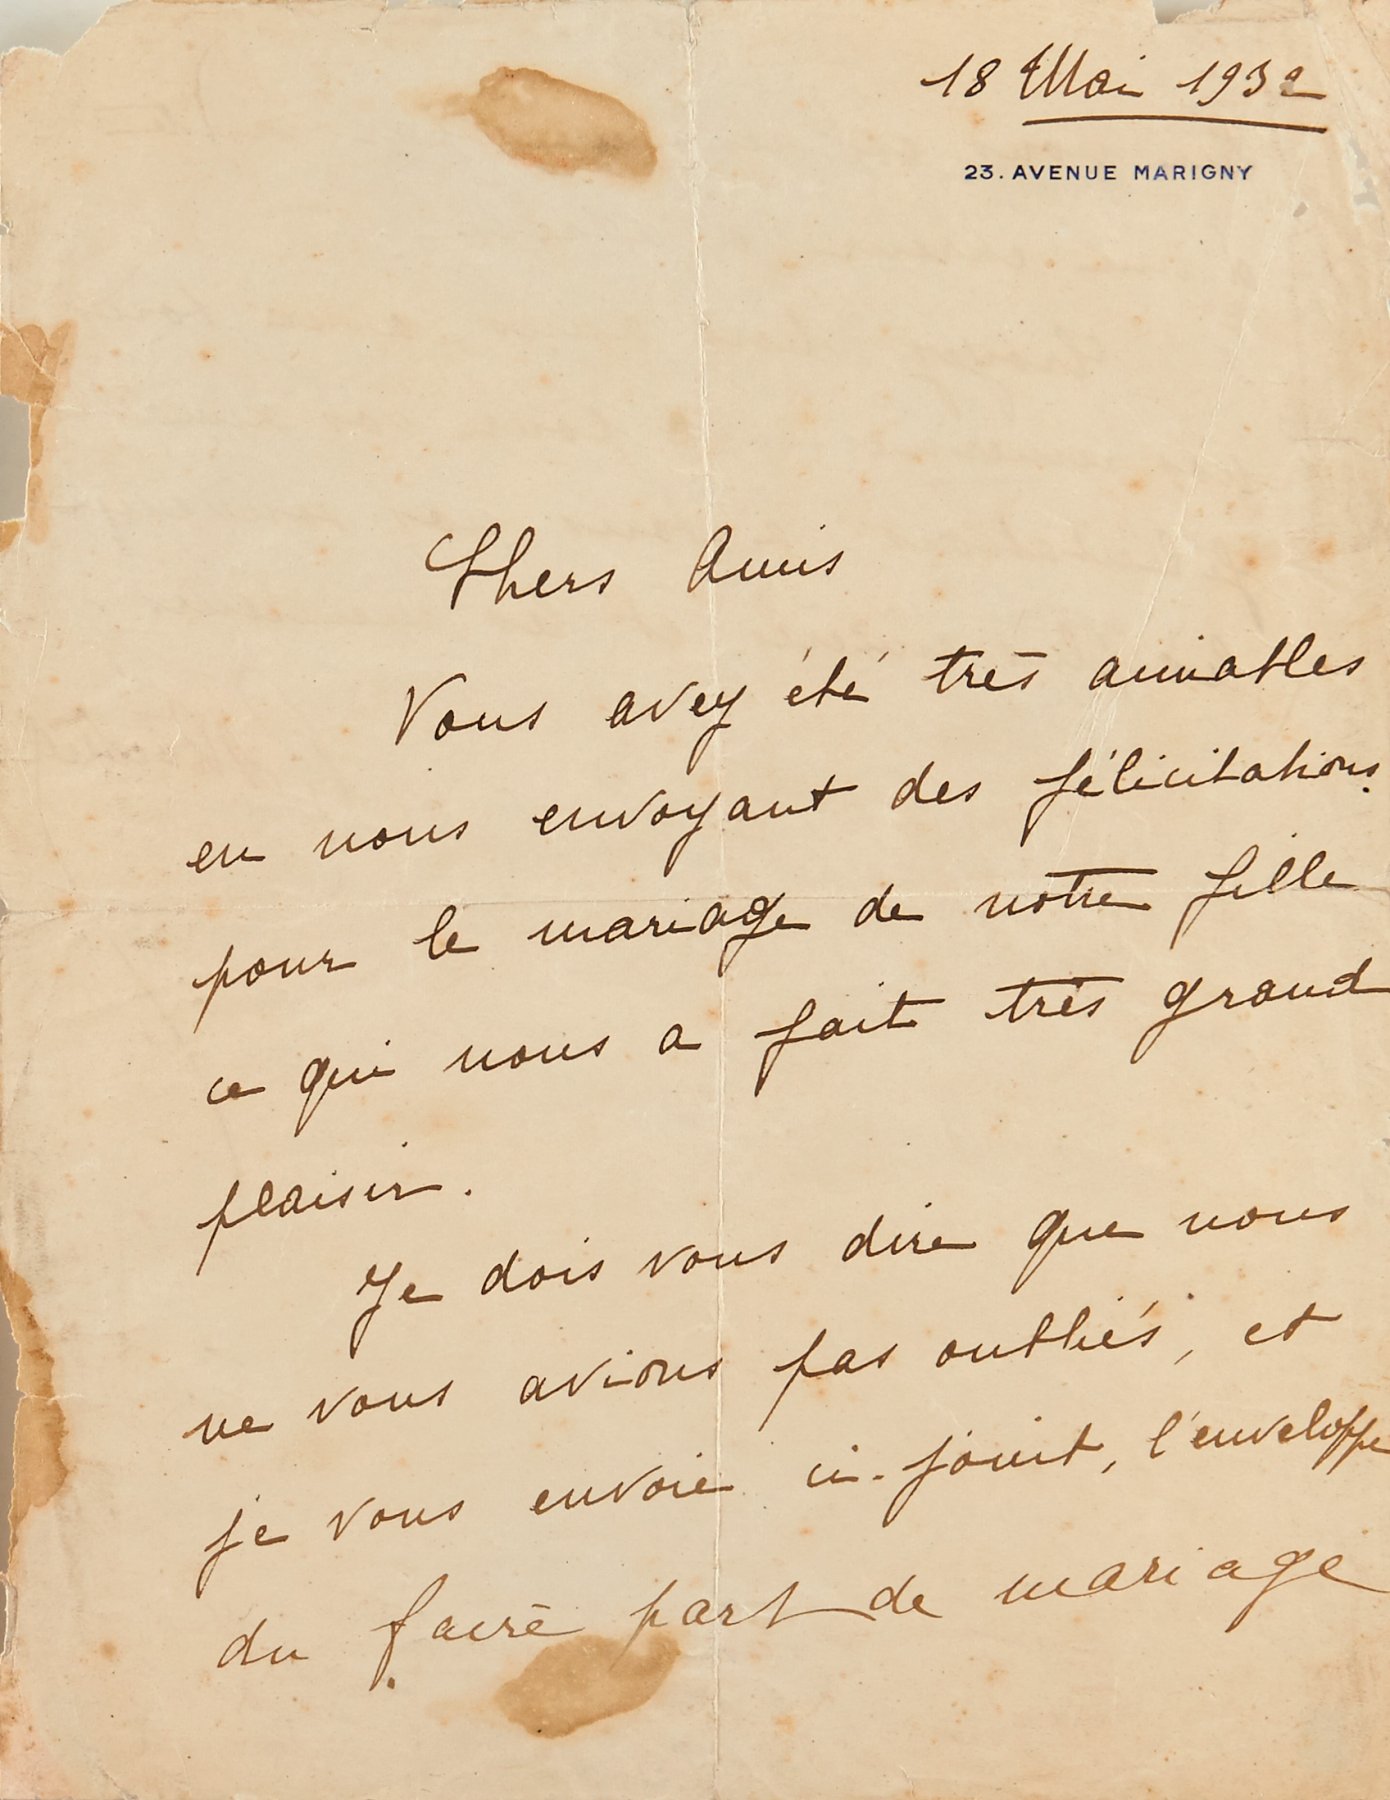 18 Mai 1932
23. AVENUE MARIGNY
Chers Amis
Vous avez été très aimables
en nous envoyant des félicitations
pour le mariage de notre fille
ce qui nous a fait très grand
plaisir.
Je dois vous dire que nous
ne vous avions pas oubliés, et
je vous envoie ci-joint, l'enveloppe
du faire part de mariage